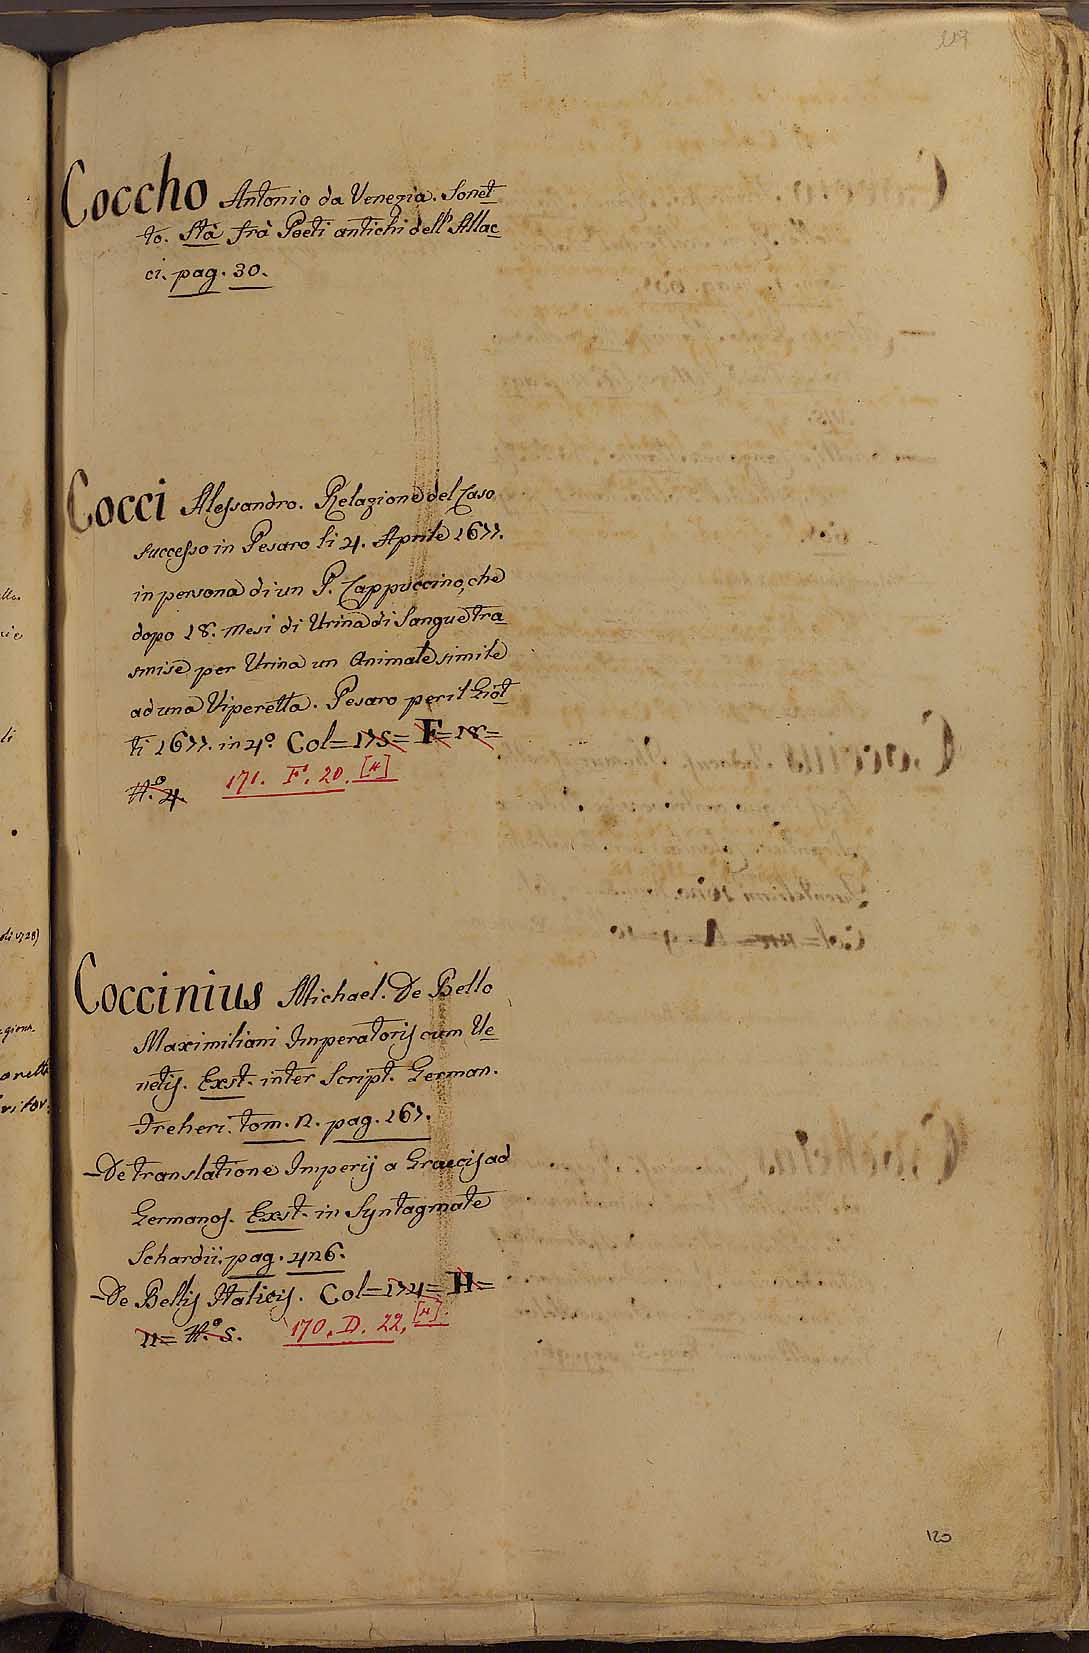 119
Coccho Antonio da Venezia. Sonet
to. Stà frà Poeti antichi dell' Allac
ci. pag. 30.
Cocci Alessandro. Relazione del Caso
successo in Pesaro li 4. Aprile 1677.
in persona di un P. Cappuccino, che
dopo 18. Mesi di Urina di Sangue tra
smise per Urina un Animale simile
ad una Viperetta. Pesaro per il Giot
ti 1677. in 4º. Col=175=F=18=
N.º 4. 171. F. 20. [4]
Coccinius Michael. De Bello
Maximiliani Imperatoris cum Ve
netis. Exst. inter Script. German.
Freheri. tom. 2. pag. 267.
-De translatione Imperij a Graecis ad
Germanos. Exst. in Syntagmate
Schardii. pag. 426.
-De Bellis Italicis. Col=174=H=
N.º 5. 170. D. 22,
120